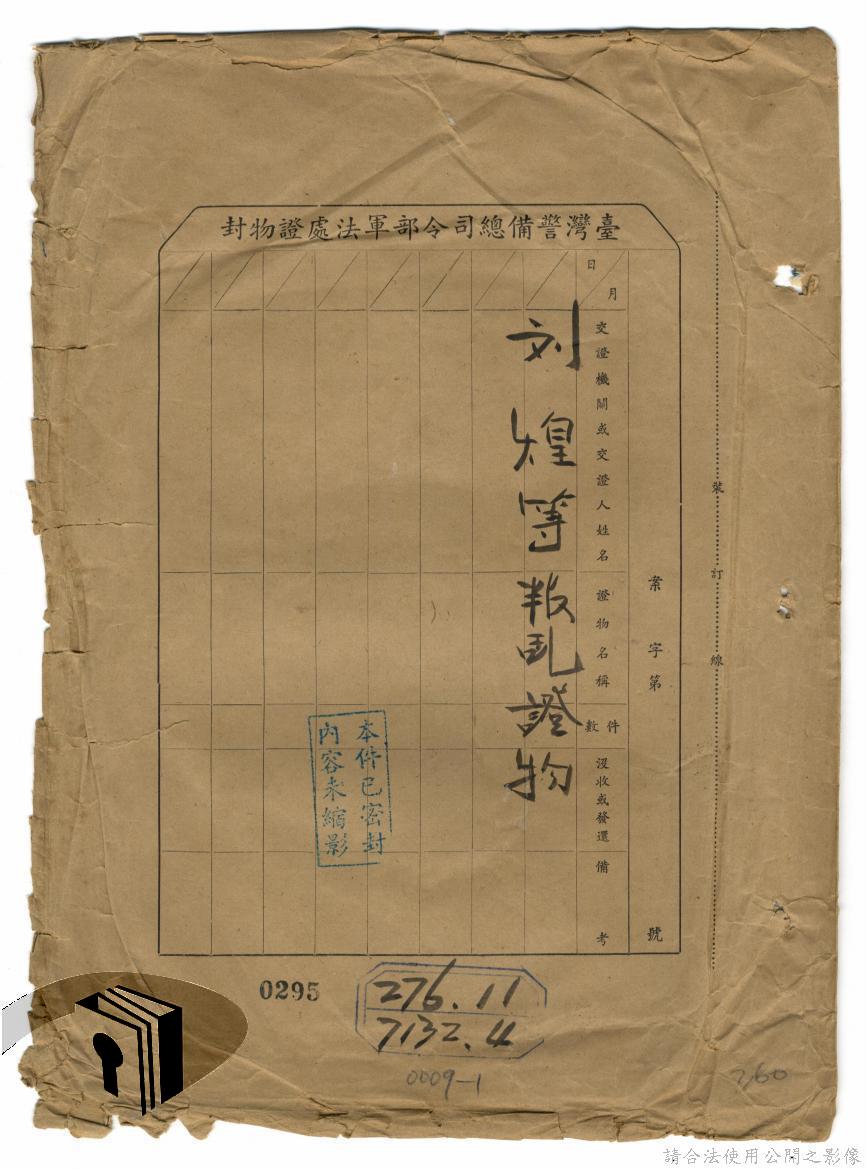 臺灣警備總司令部軍法處證物封
案字第
號
月
日
交證機關或交證人姓名
證物名稱
件數
沒收或發還
備考
刘煌等叛乱證物
本件已密封
內容未縮影
裝訂線
0295
276.11
7132.4
0009-1
260
請合法使用公開之影像